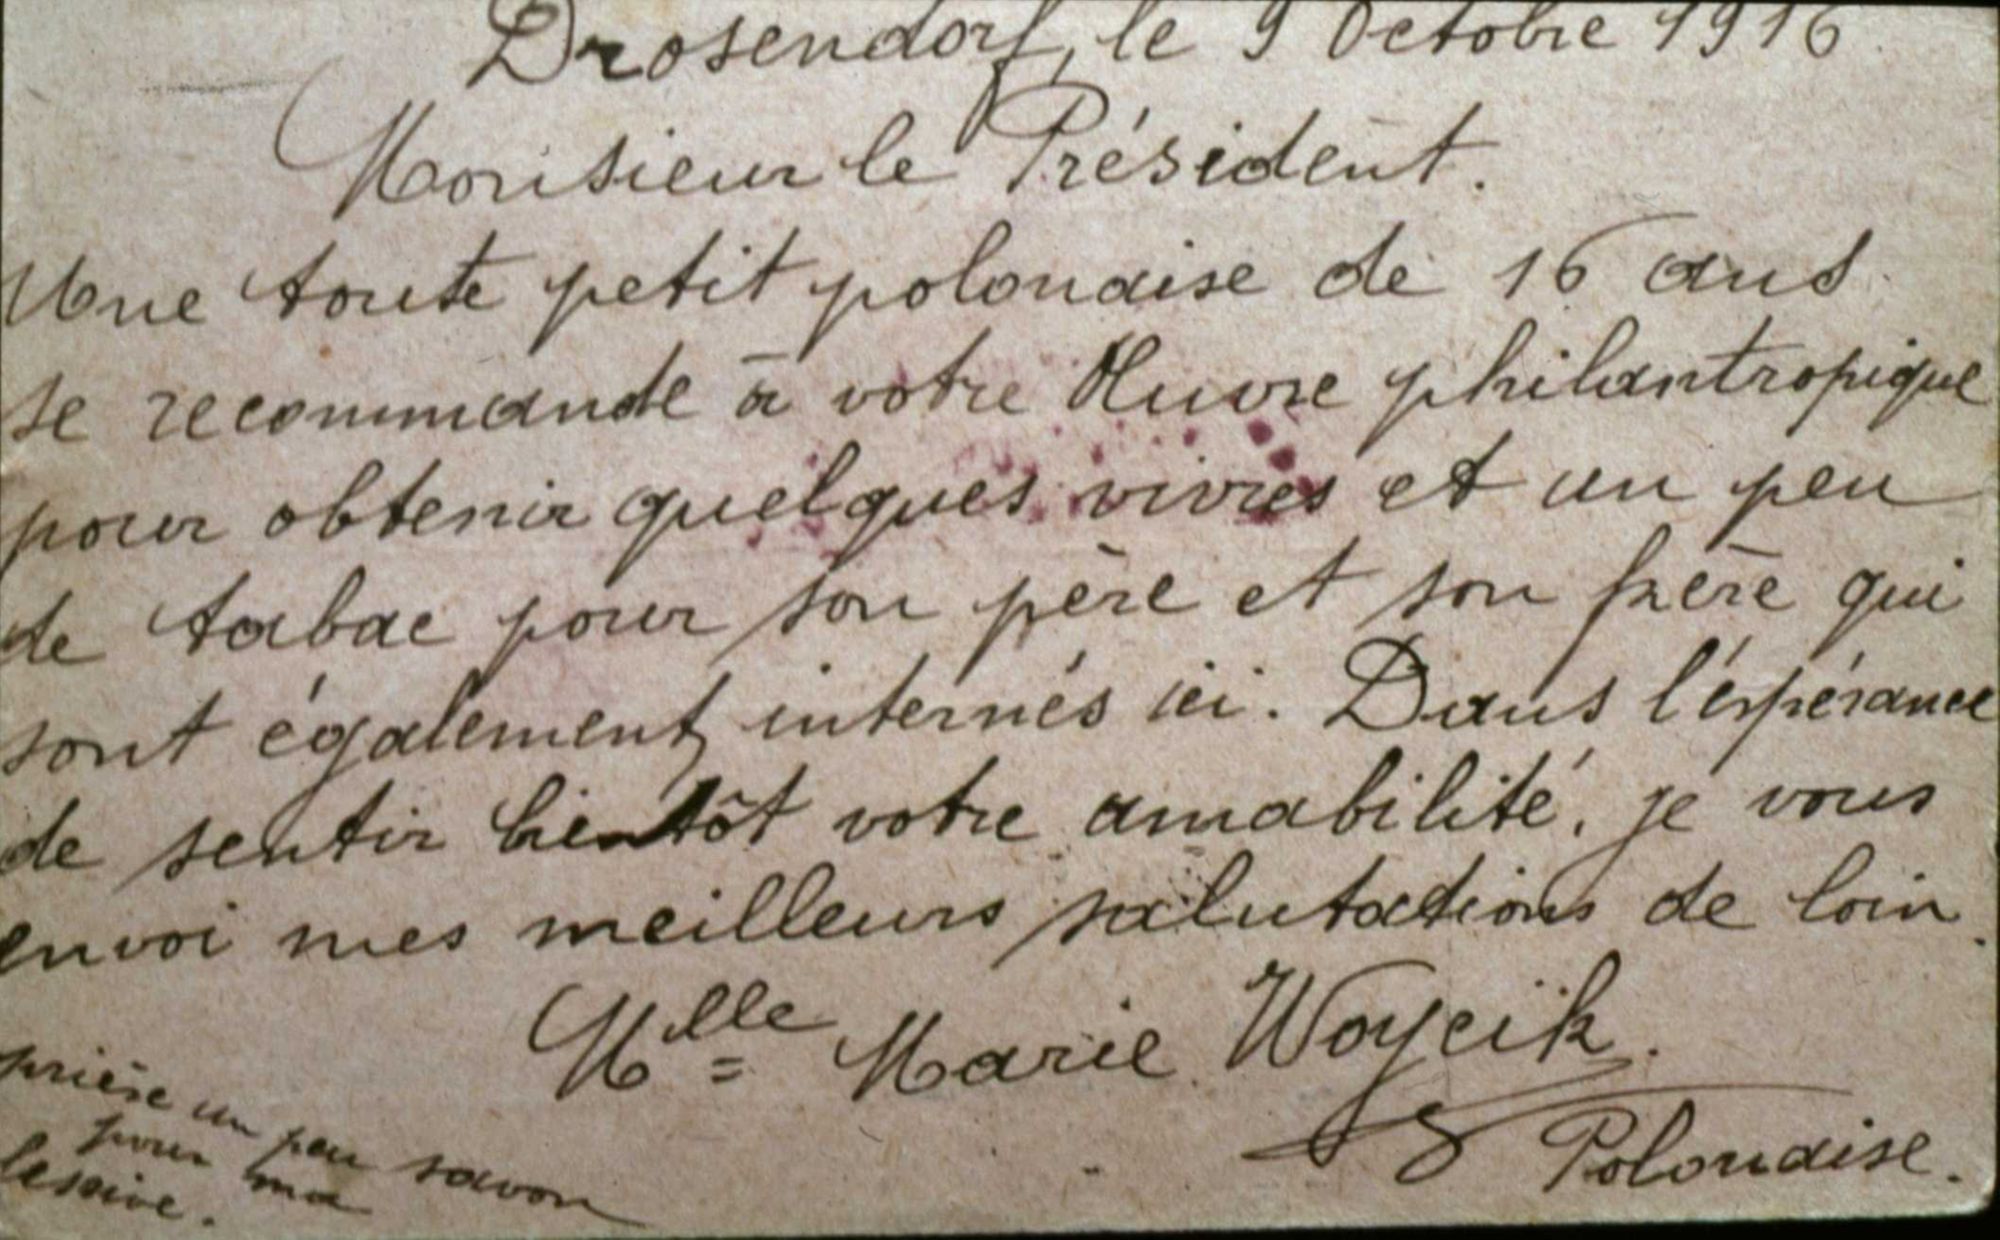 Drosendorf, le 9 Octobre 1916.
Monsieur le Président.
Une toute petit polonaise de 16 ans
se recommande à votre Œuvre philantropique
pour obtenir quelques vivres et un peu
de tabac pour son père et son frère qui
sont également internés ici. Dans l'éspérance
de sentir bientôt votre amabilité, je vous
envoi mes meilleurs salutations de loin.
Mlle Marie Woycik.
Polonaise.
prière un peu savon
pour ma
lessive.